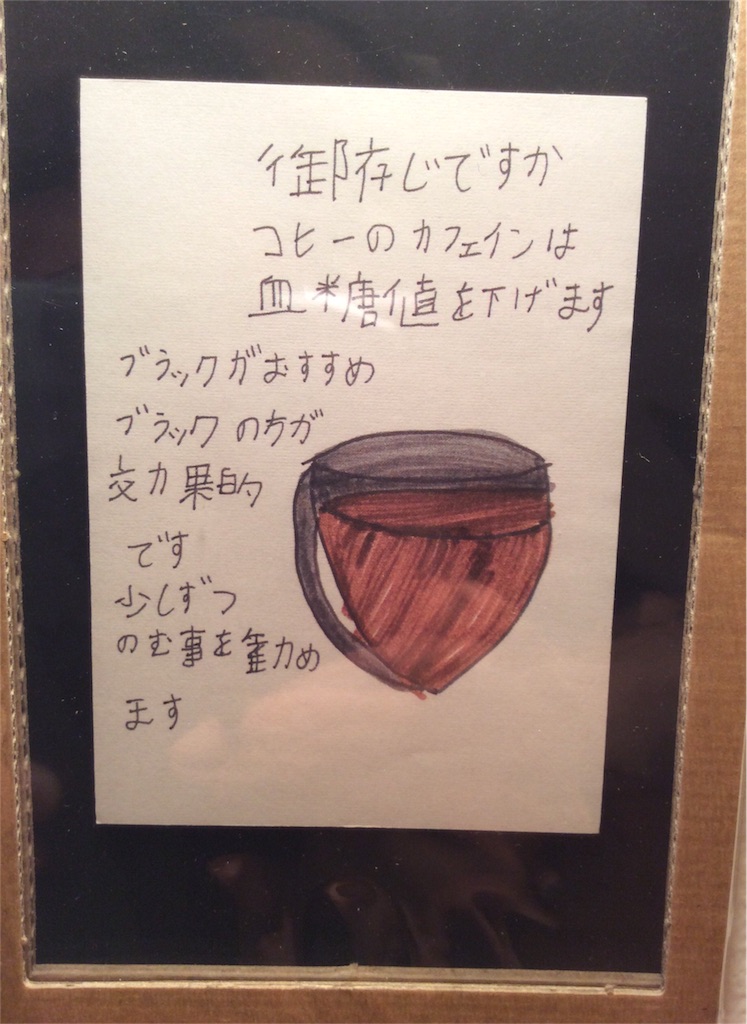 御存じですか
コヒーのカフェインは
血糖値を下げます
ブラックがおすすめ
ブラックの方が
効果的
です
少しずつ
のむ事を勧め
ます